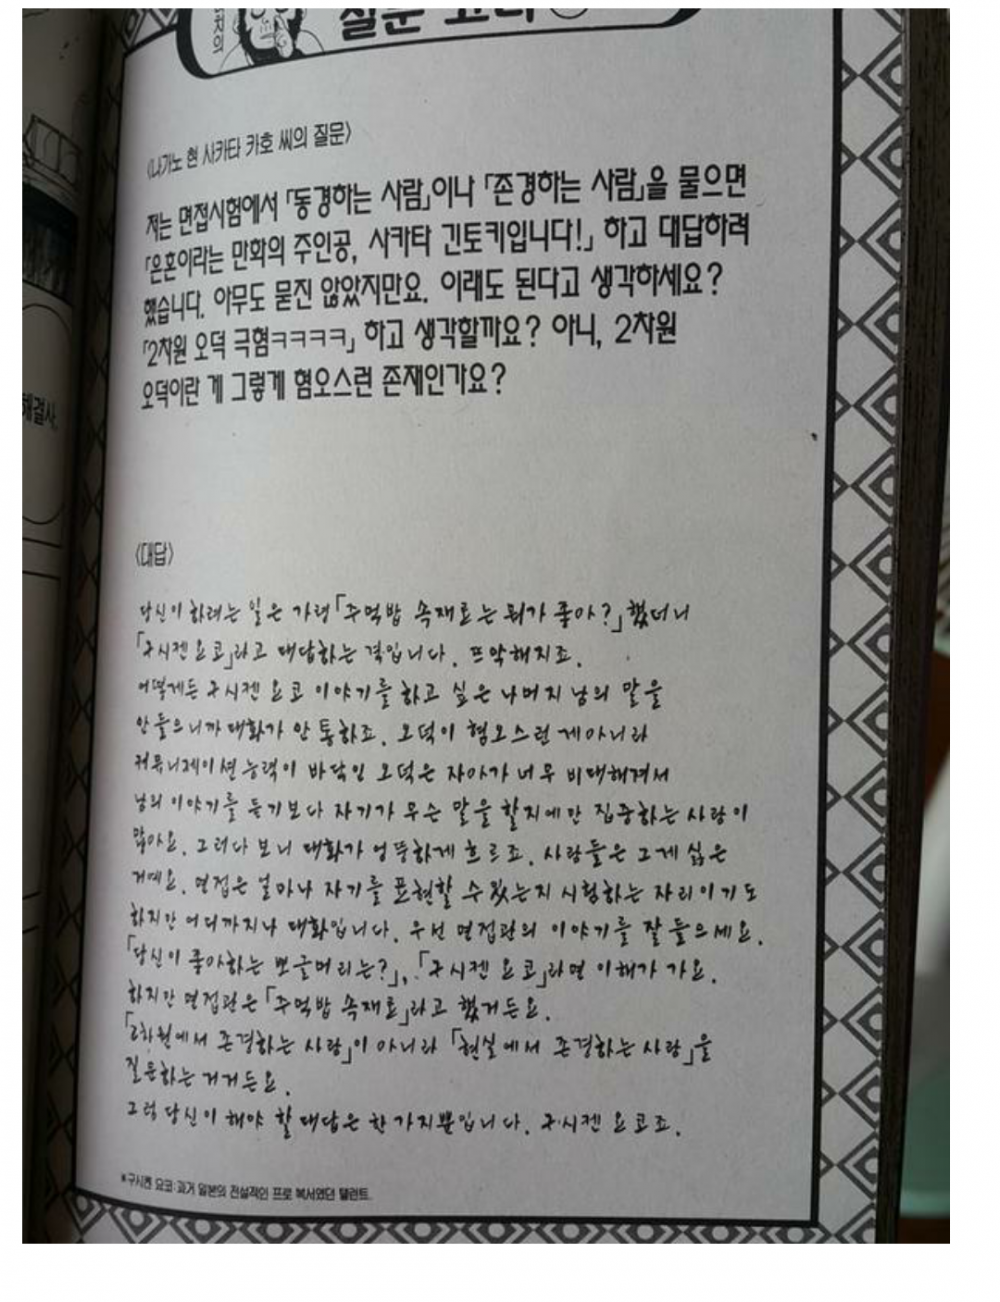 질문 코너
〈나가노 현 사카타 카호 씨의 질문〉
저는 면접시험에서 「동경하는 사람」이나 「존경하는 사람」을 물으면
「은혼이라는 만화의 주인공, 사카타 긴토키입니다!」 하고 대답하려
했습니다. 아무도 묻진 않았지만요. 이래도 된다고 생각하세요?
「2차원 오덕 극혐ㅋㅋㅋㅋ」 하고 생각할까요? 아니, 2차원
오덕이란 게 그렇게 혐오스런 존재인가요?
해결사.
〈대답〉
당신이 하려는 일은 가령 「주먹밥 속재료는 뭐가 좋아?」 했더니
「구시켄 요코」라고 대답하는 격입니다. 뜨악해지죠.
어떻게든 구시켄 요코 이야기를 하고 싶은 나머지 남의 말을
안 들으니까 대화가 안 통하죠. 오덕이 혐오스런 게 아니라
커뮤니케이션 능력이 바닥인 오덕은 자아가 너무 비대해져서
남의 이야기를 듣기보다 자기가 무슨 말을 할지에만 집중하는 사람이
많아요. 그러다 보니 대화가 엉뚱하게 흐르죠. 사람들은 그게 싫은
거예요. 면접은 얼마나 자기를 표현할 수 있는지 시험하는 자리이기도
하지만 어디까지나 대화입니다. 우선 면접관의 이야기를 잘 들으세요.
「당신이 좋아하는 뽀글머리는?」, 「구시켄 요코」라면 이해가 가요.
하지만 면접관은 「주먹밥 속재료」라고 했거든요.
「2차원에서 존경하는 사람」이 아니라 「현실에서 존경하는 사람」을
질문하는 거거든요.
그럼 당신이 해야 할 대답은 한 가지뿐입니다. 구시켄 요코죠.
*구시켄 요코:과거 일본의 전설적인 프로 복서였던 탤런트.